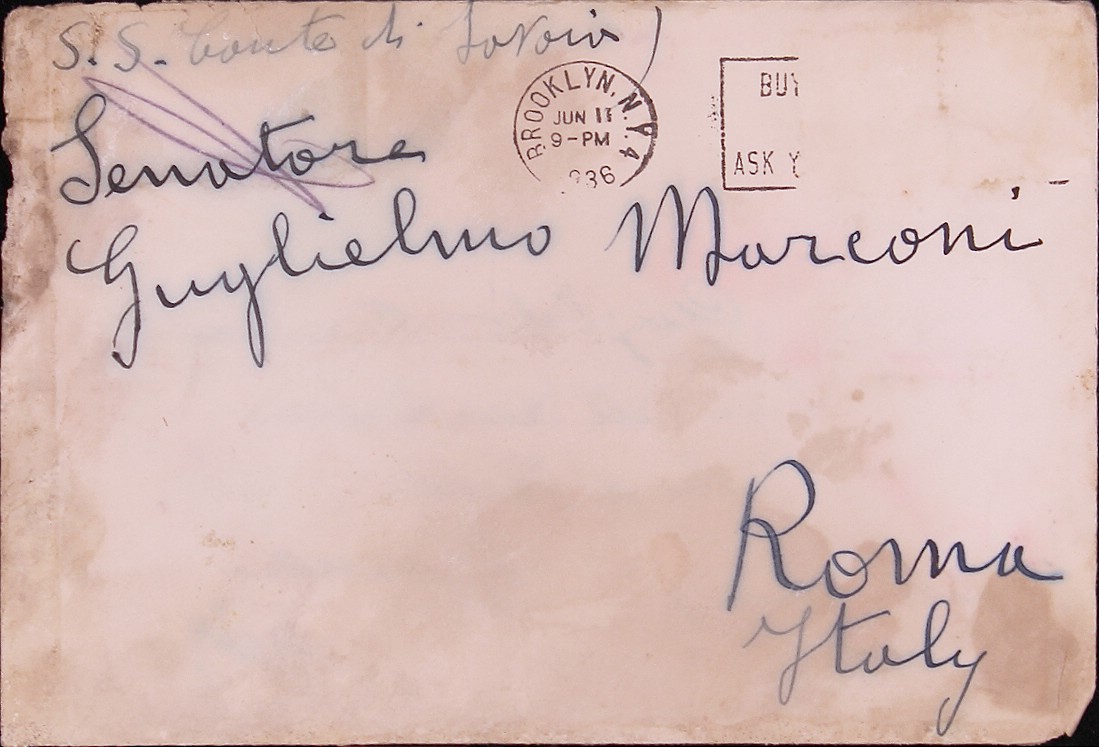 S.S. Conte di Savoia)
BROOKLYN, N.Y. 4
JUN 11
9-PM
936
BUY
ASK Y
Senatore
Guglielmo Marconi
Roma
Italy